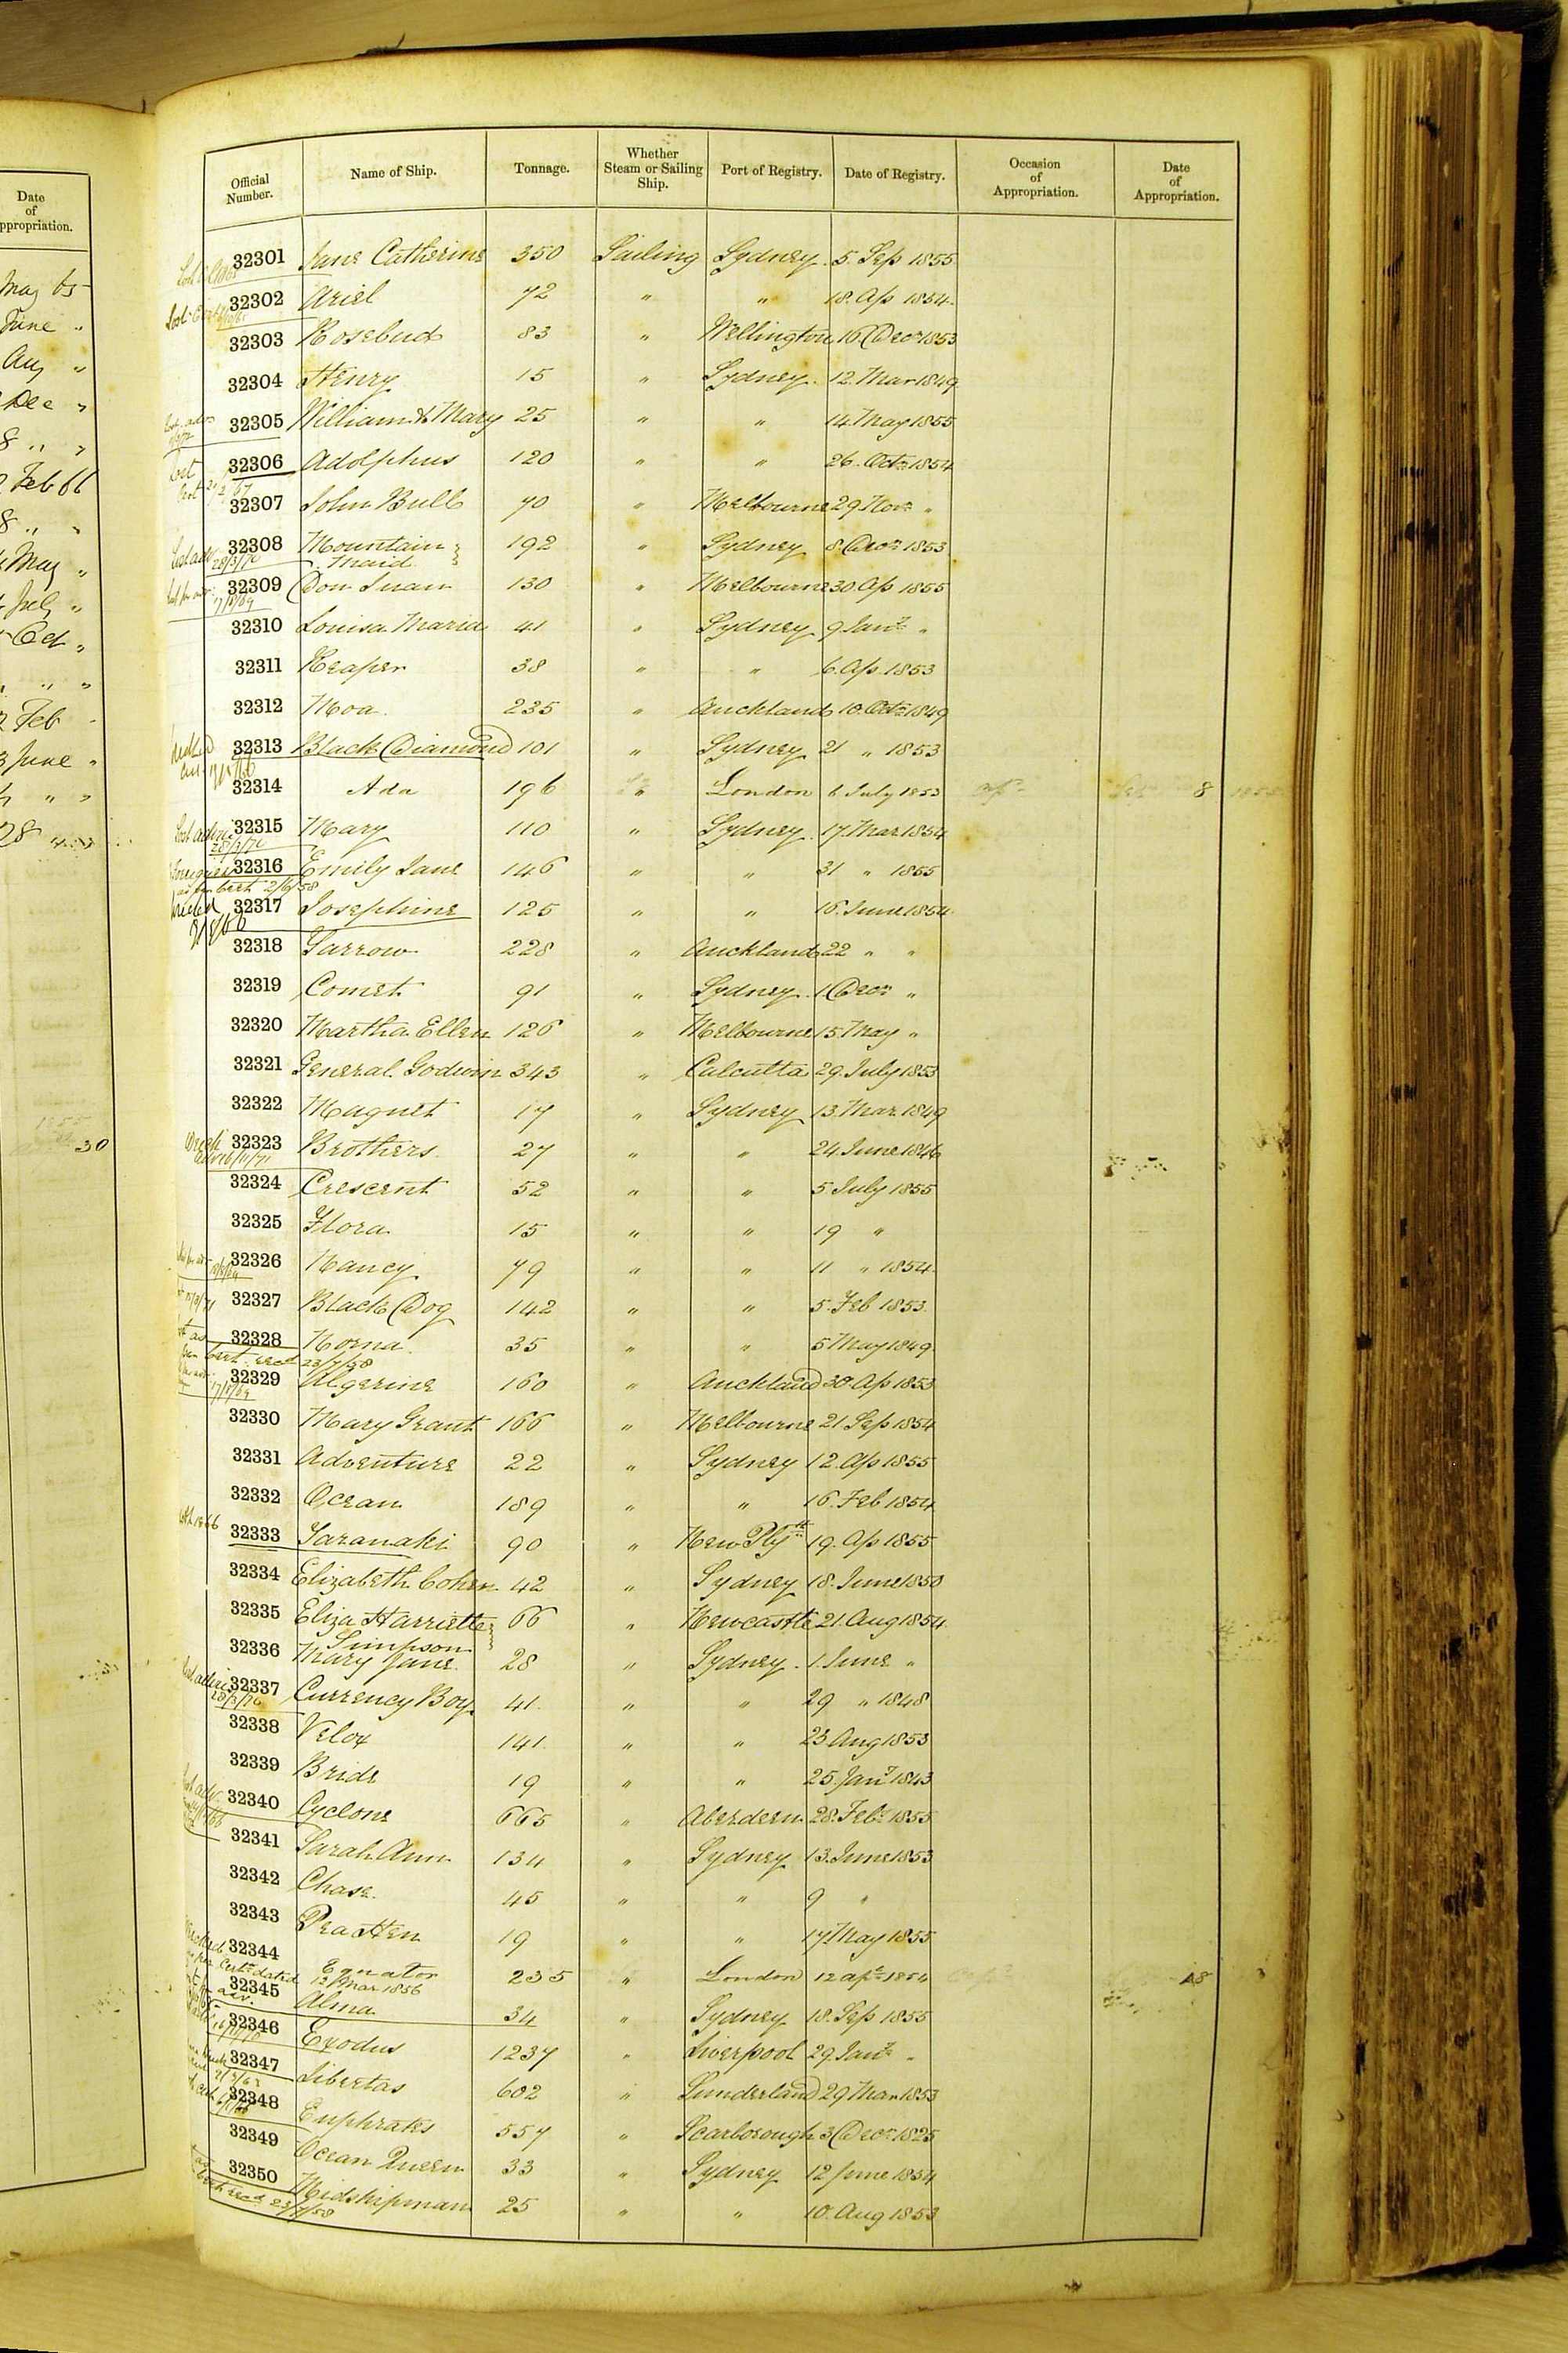 Date
of
ppropriation.
May 65
June "
Aug "
Dec "
8 " "
Feb 66
8 " "
May "
July "
Oct "
" " "
Feb
3 June "
" "
28
30
Official Number. Name of Ship. Tonnage. Whether Steam or Sailing Ship. Port of Registry. Date of Registry. Occasion of Appropriation. Date of Appropriation.
32301 Jane Catherine 350 Sailing Sydney 5 Sep 1855
32302 Ariel 72 " " 18 Ap 1854
32303 Rosebud 83 " Wellington 16 Decr 1853
32304 Henry 15 " Sydney 12 Mar 1849
32305 William & Mary 25 " " 14 May 1855
Lost
32306 Adolphus 120 " " 26 Octr 1854
32307 John Bull 70 " Melbourne 29 Novr "
32308 Mountain Maid 192 " Sydney 8 Decr 1853
28/3/76
32309 Don Juan 130 " Melbourne 30 Ap 1855
32310 Louisa Maria 41 " Sydney 9 Jany "
32311 Reaper 38 " " 6 Ap 1853
32312 Moa 235 " Auckland 10 Octr 1849
32313 Black Diamond 101 " Sydney 21 " 1853
32314 Ada 196 " London 6 July 1853 8
32315 Mary 110 " Sydney 17 Mar 1854
28/3/76
32316 Emily Jane 146 " " 31 " 1855
Cert 2/6/58
32317 Josephine 125 " " 16 June 1854
32318 Yarrow 228 " Auckland 22 " "
32319 Comet 91 " Sydney 1 Decr "
32320 Martha Ellen 126 " Melbourne 15 May "
32321 General Godwin 343 " Calcutta 29 July 1853
32322 Magnet 17 " Sydney 13 Mar 1849
32323 Brothers 27 " " 24 June 1846
32324 Crescent 52 " " 5 July 1855
32325 Flora 15 " " 19 "
32326 Nancy 79 " " 11 " 1854
32327 Black Dog 142 " " 5 Feb 1853
32328 Norna 35 " " 5 May 1849
Cert recd 23/7/58
32329 Algerine 160 " Auckland 30 Ap 1853
32330 Mary Grant 166 " Melbourne 21 Sep 1854
32331 Adventure 22 " Sydney 12 Ap 1855
32332 Ocean 189 " " 16 Feb 1854
32333 Taranaki 90 " New Plyth 19 Ap 1855
32334 Elizabeth Cohen 42 " Sydney 18 June 1850
32335 Eliza Harriette Simpson 66 " Newcastle 21 Aug 1854
32336 Mary Jane 28 " Sydney 1 June "
32337 Currency Boy 41 " " 29 " 1848
28/3/76
32338 Velox 141 " " 23 Aug 1853
32339 Bride 19 " " 25 Jany 1843
32340 Cyclone 665 " Aberdeen 28 Feby 1855
32341 Sarah Ann 134 " Sydney 13 June 1853
32342 Chase 45 " " 9 "
32343 Pea Hen 19 " " 17 May 1855
32344 Equator 235 " London 12 Apl 1854 18
per Certe dated 12 Mar 1856
32345 Alma 34 " Sydney 18 Sep 1855
32346 Exodus 1237 " Liverpool 29 Jany "
32347 Libertas 602 " Sunderland 29 Mar 1853
32348 Euphrates 557 " Scarborough 3 Decr 1825
32349 Ocean Queen 33 " Sydney 12 June 1854
32350 Midshipman 25 " " 10 Aug 1853
Cert recd 23/7/58